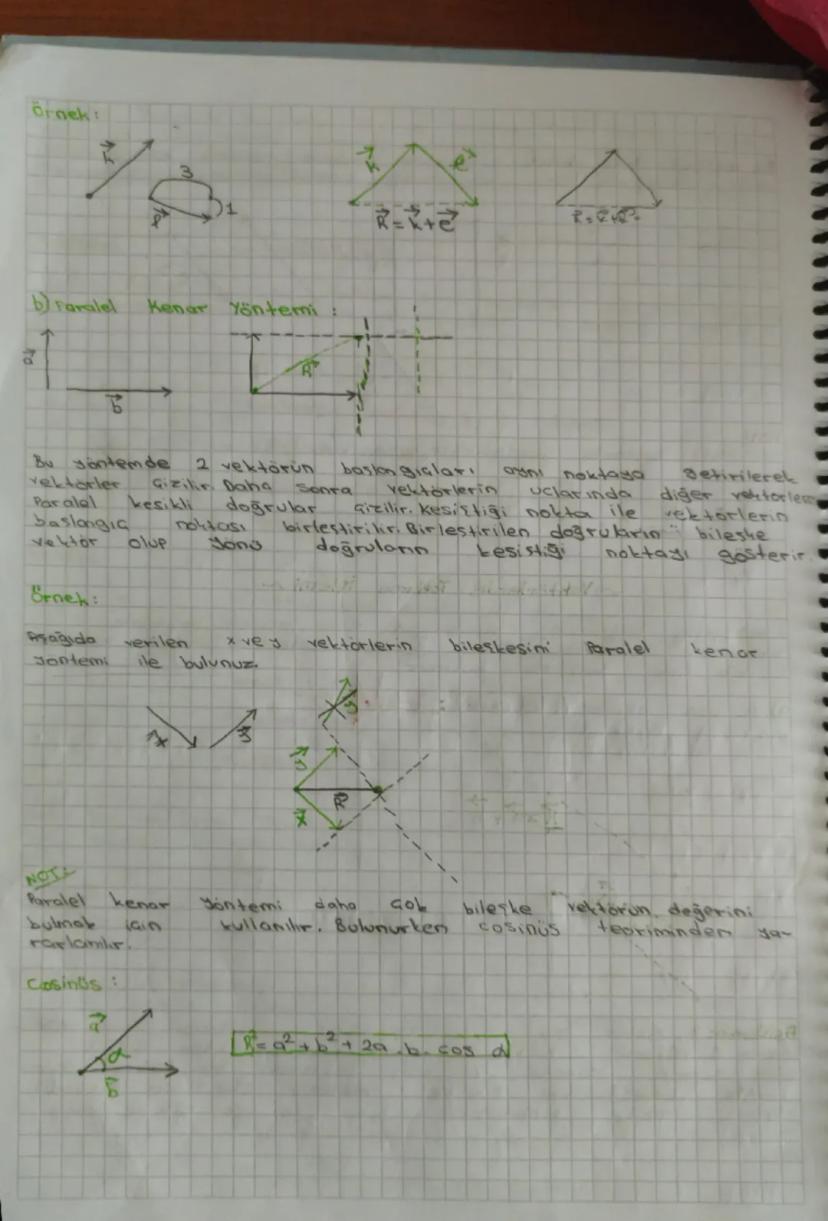 Örnek:
k
3
1
k
e
R = k + e
b) Paralel Kenar Yöntemi :
a
b
R
Bu yöntemde 2 vektörün başlangıçları aynı noktaya getirilerek
vektörler çizilir. Daha sonra vektörlerin uçlarında diğer vektörlere
Paralel kesikli doğrular çizilir. Kesiştiği nokta ile vektörlerin
başlangıç noktası birleştirilir. Birleştirilen doğruların bileşke
vektör olup yönü doğruların kesiştiği noktayı gösterir.
Örnek:
Aşağıda verilen x ve y vektörlerin bileşkesini Paralel kenar
yöntemi ile bulunuz.
x
y
y
R
x
NOT:
Paralel kenar yöntemi daha çok bileşke vektörün değerini
bulmak için kullanılır. Bulunurken cosinüs teoriminden ya-
rarlanılır.
Cosinüs :
a
α
b
R² = a² + b² + 2a . b . cos α